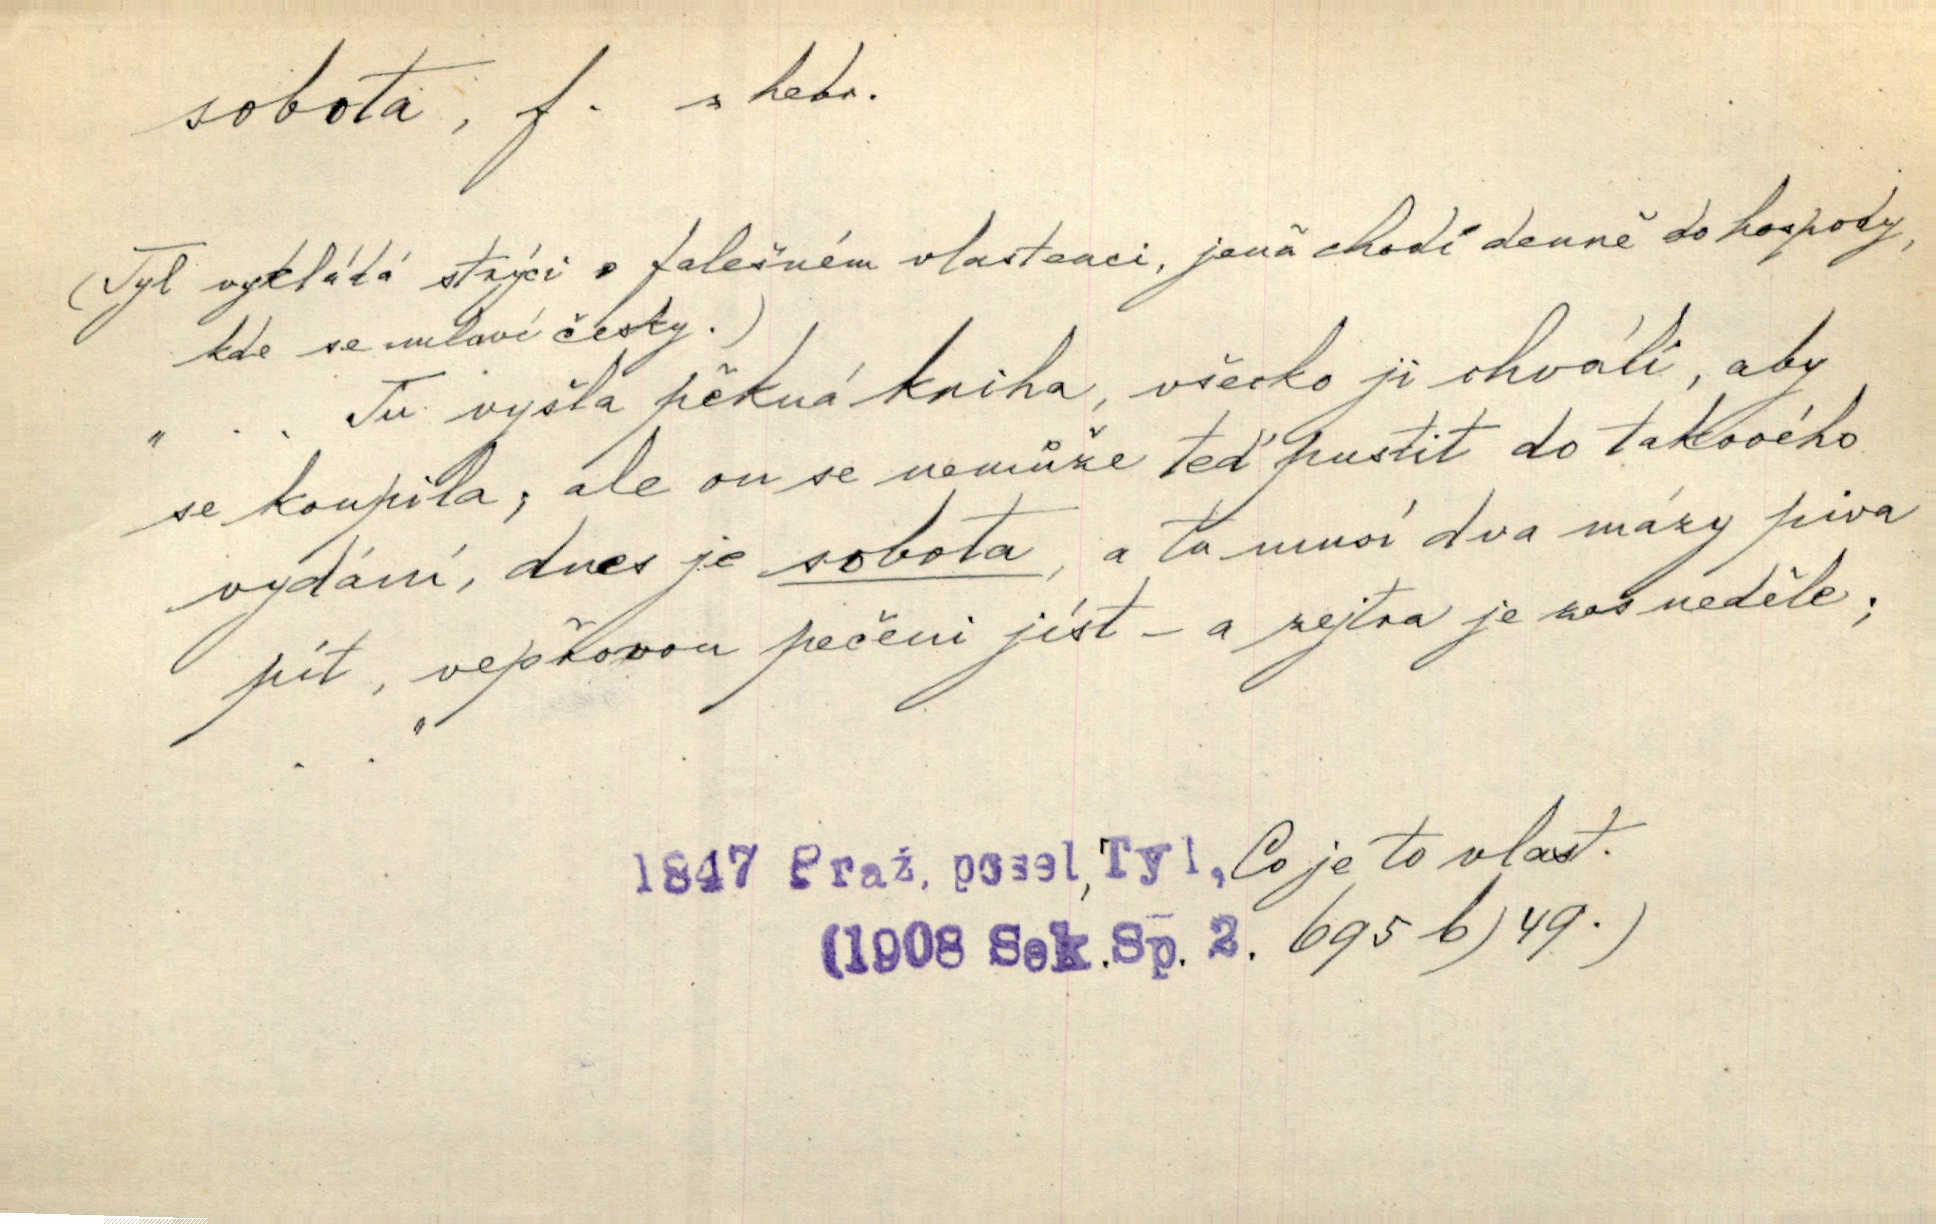 sobota, f. z hebr.
(Tyl vykládá strýci o falešném vlastenci, jenž chodí denně do hospody,
kde se mluví česky.)
" . . Tu vyšla pěkná kniha, všecko ji chválí, aby
se koupila; ale on se nemůže teď pustit do takového
vydání, dnes je sobota, a tu musí dva mázy piva
pít, vepřovou pečeni jíst – a zejtra je zas neděle;
. . "
1847 Praž. posel, Tyl, Co je to vlast.
(1908 Sek. Sp. 2. 695 b) 49.)